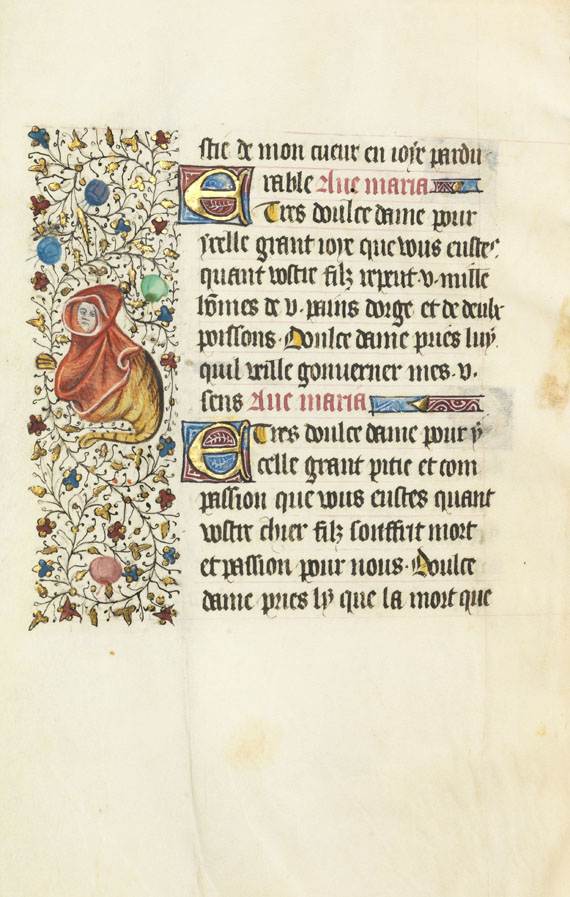 stie de mon cueur en ioye pardu
rable Aue maria
E Tres doulce dame pour
ycelle grant ioye que vous eustes
quant vostre filz reput .v. mille
hom̄es de .v. pains dorge et de deux
poissons. Doulce dame pries luy
quil veille gouuerner mes .v.
sens Aue maria
E Tres doulce dame pour y
celle grant pitie et com
passion que vous eustes quant
vostre chier filz souffrit mort
et passion pour nous. Doulce
dame pries ly que la mort que